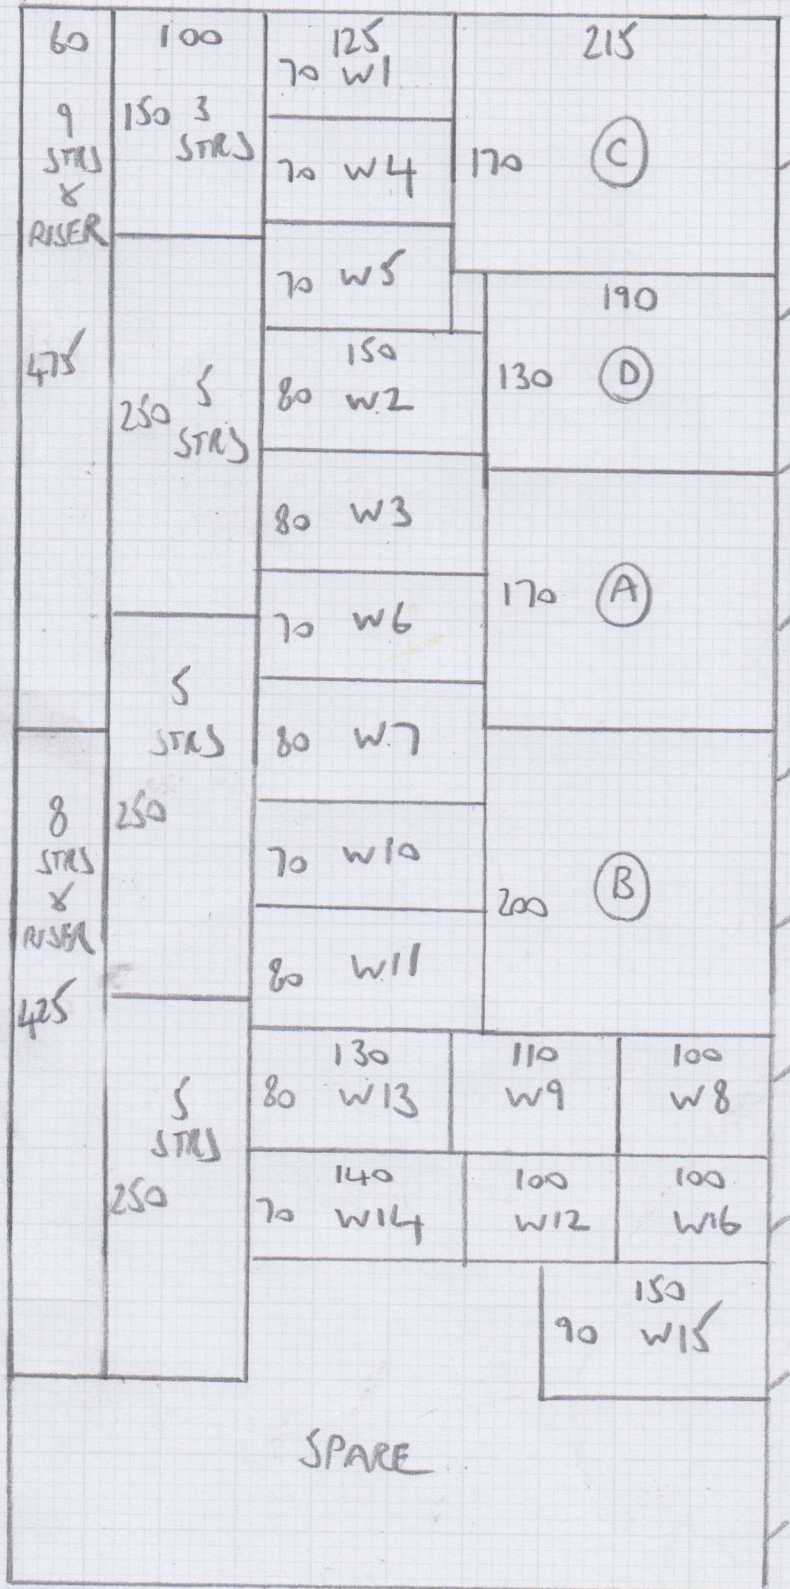 60
9
STRS
&
RISER
475
8
STRS
&
RISER
425
100
150 3
STRS
250 5
STRS
5
STRS
250
5
STRS
250
125
70 W1
70 W4
70 W5
150
80 W2
80 W3
70 W6
80 W7
70 W10
80 W11
215
170 C
190
130 D
170 A
200 B
130
80 W13
110
W9
100
W8
140
70 W14
100
W12
100
W16
150
90 W15
SPARE